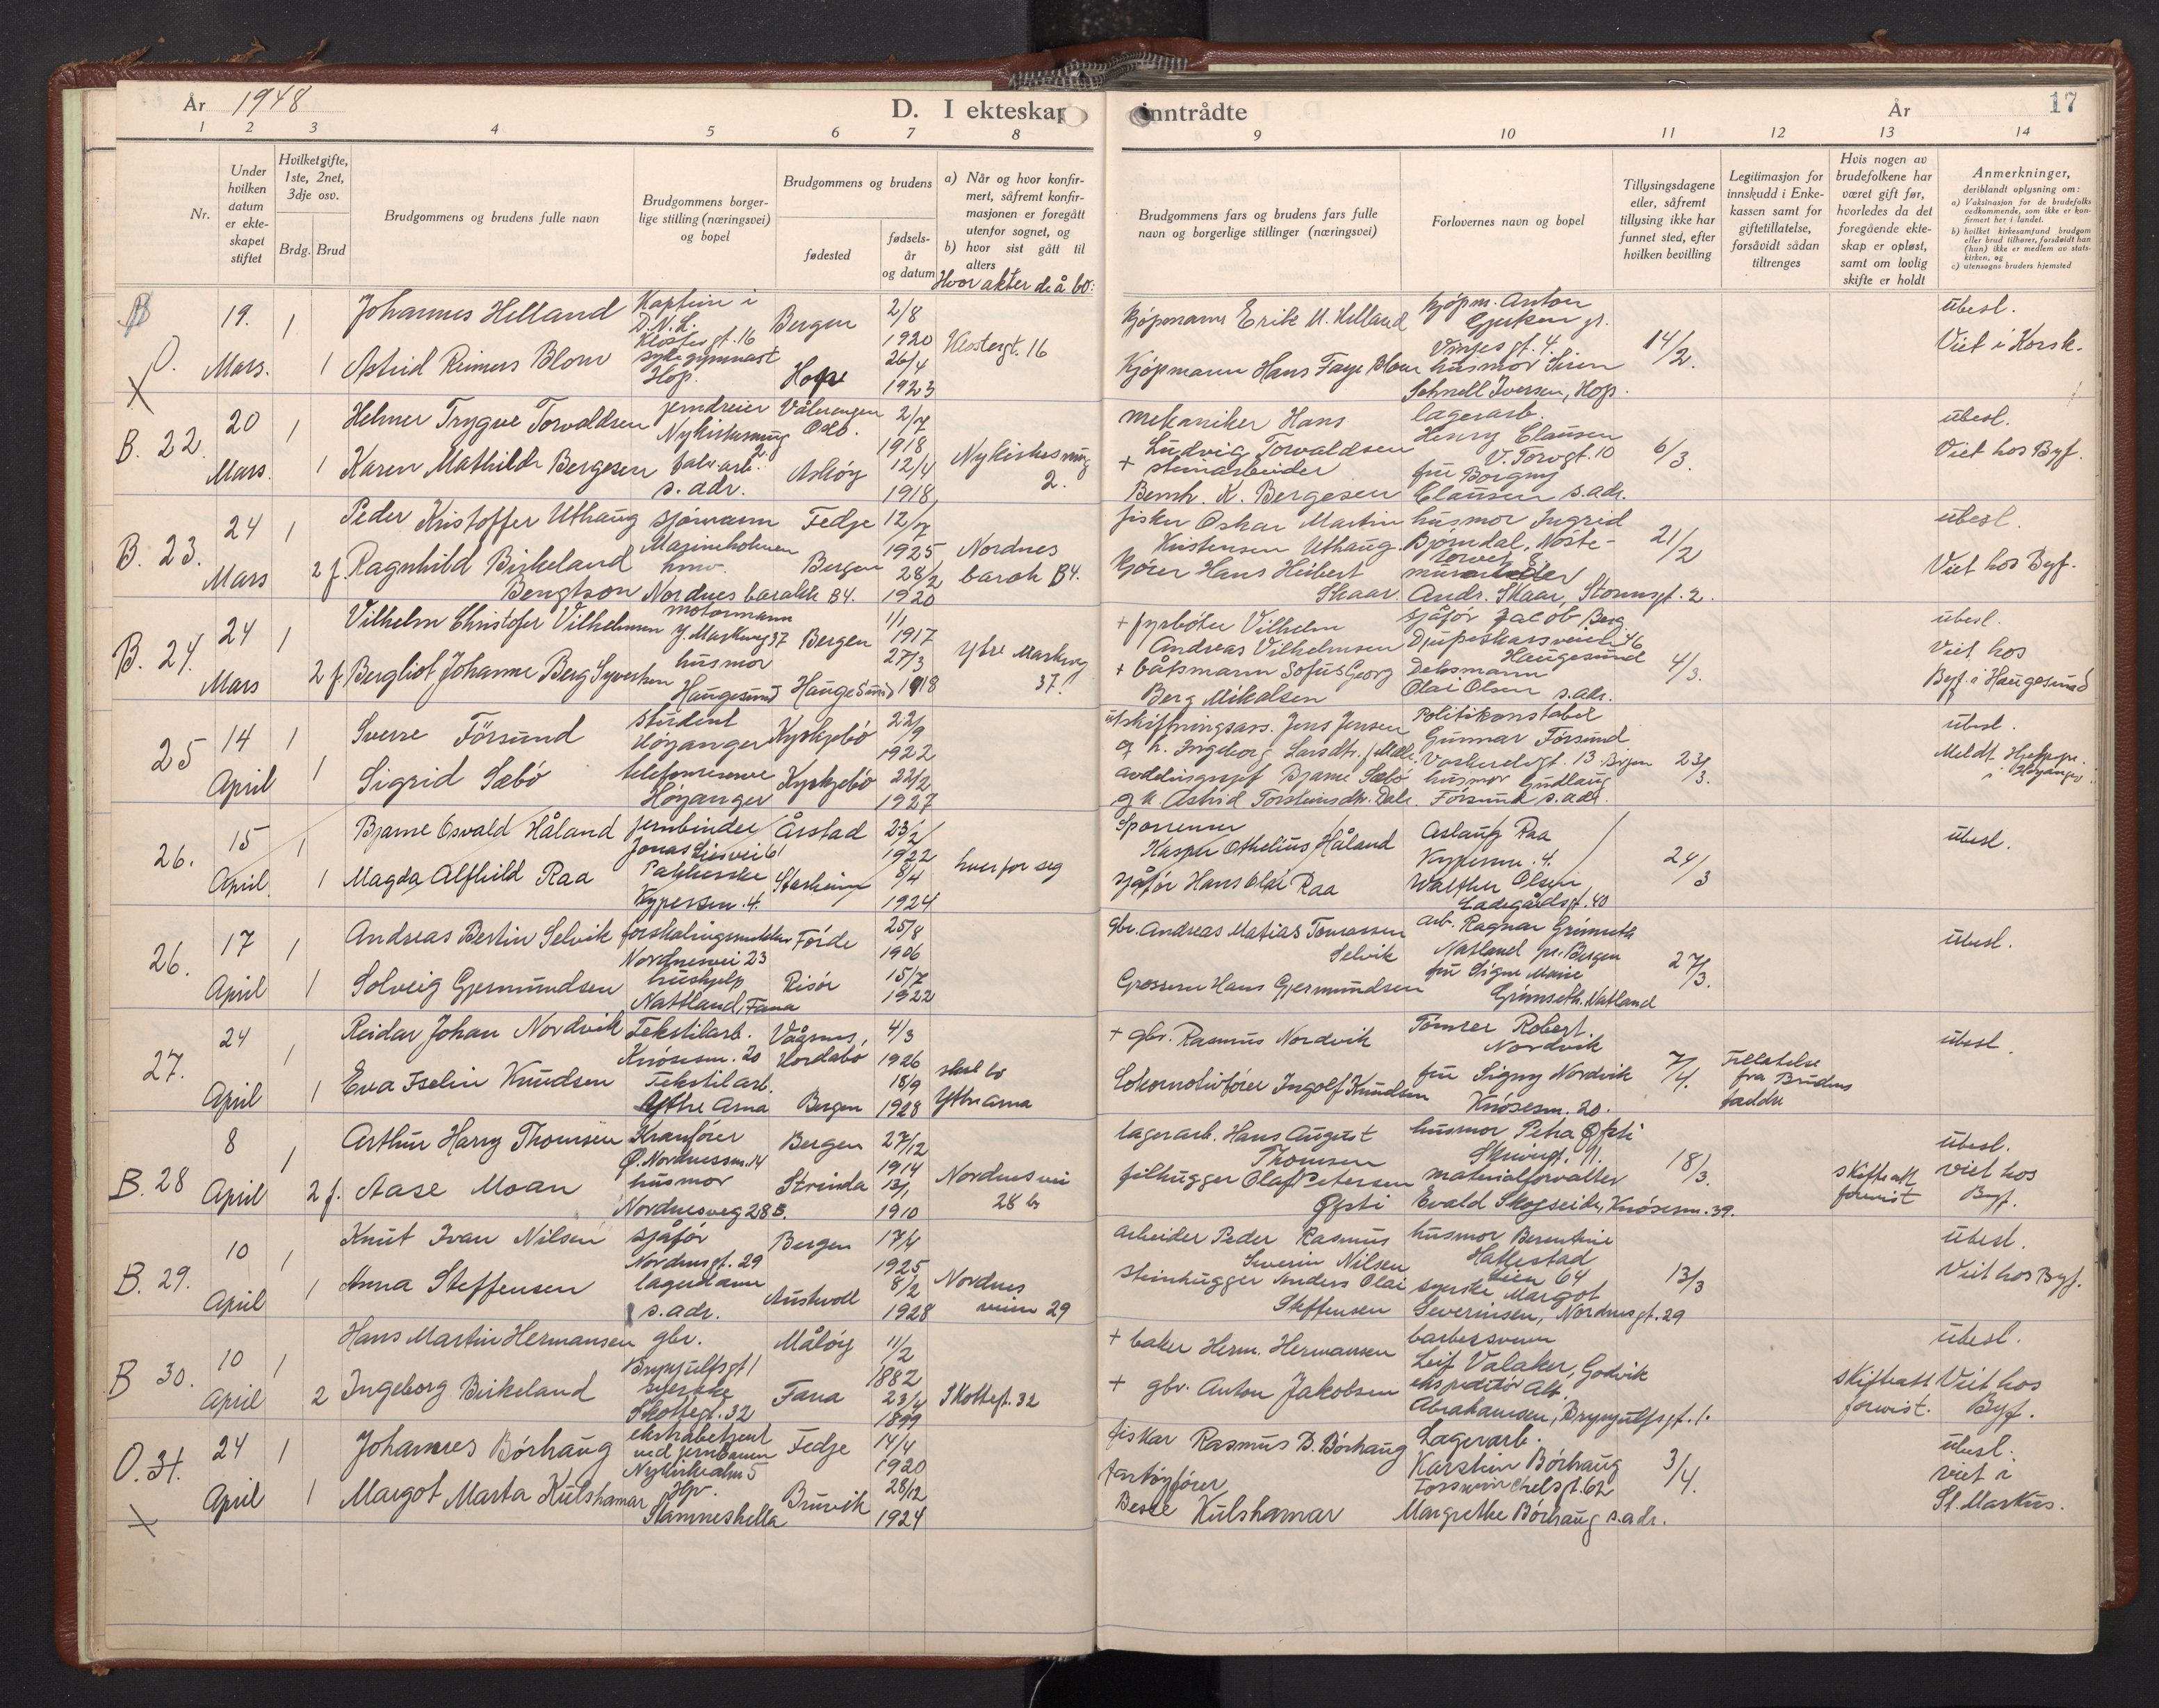 År 1948
D. I ekteskap inntrådte
År
17
1 2 3 4 5 6 7 8 9 10 11 12 13 14
Nr.
Under hvilken datum er ekteskapet stiftet
Hvilket gifte, 1ste, 2net, 3dje osv.
Brdg. Brud
Brudgommens og brudens fulle navn
Brudgommens borgerlige stilling (næringsvei) og bopel
Brudgommens og brudens
fødested
fødselsår og datum
a) Når og hvor konfirmert, såfremt konfirmasjonen er foregått utenfor sognet, og
b) hvor sist gått til alters
Hvor akter de å bo:
Brudgommens fars og brudens fars fulle navn og borgerlige stillinger (næringsvei)
Forlovernes navn og bopel
Tillysingsdagene eller, såfremt tillysing ikke har funnet sted, efter hvilken bevilling
Legitimasjon for innskudd i Enkekassen samt for giftetillatelse, forsåvidt sådan tiltrenges
Hvis nogen av brudefolkene har været gift før, hvorledes da det foregående ekteskap er opløst, samt om lovlig skifte er holdt
Anmerkninger,
deriblandt oplysning om:
a) Vaksinasjon for de brudefolks vedkommende, som ikke er konfirmert her i landet.
b) hvilket kirkesamfund brudgom eller brud tilhører, forsåvidt han (han) ikke er medlem av statskirken, og
c) utensogns bruders hjemsted
O. X
19. Mars. 1 1
Johannes Helland Kaptein i D.N.L. Klostergt. 16 Bergen 2/8 1920
Astrid Reimers Blom sykegymnast Hop. Hop 26/4 1923
Klostergt. 16
Kjøpmann Erik M. Helland
Kjøpmann Hans Faye Blom
Kjøpm. Anton Gjerken jr. Vinjesgt. 4.
husmor Siren Schnell Iversen, Hop.
14/2.
ubesl.
Viet i Korsk.
B. 22. 20 Mars. 1 1
Helmer Trygve Torvaldsen jerndreier Nykirkesmug 2 Vålerengen Oslo. 2/7 1918
Karen Mathilde Bergesen s. adr. Askøy 12/4 1918
Nykirkesmug 2.
mekaniker Hans Ludvig Torvaldsen
+ steinarbeider Bernh. K. Bergesen
lagerarb. Henry Clausen V. Torvgt. 10
fru Borgny Clausen s. adr.
6/3.
ubesl.
Viet hos Byf.
B. 23. 24 Mars 1 2 f.
Peder Kristoffer Uthaug sjømann Marineholmen Fedje 12/7 1925
Ragnhild Birkeland Bengtson hmv. Nordnes barakk B4. Bergen 28/2 1920
Nordnes barak B4.
fisker Oskar Martin Kristensen Uthaug
Kjører Hans Heibert Skaar
husmor Ingrid Bjørndal, Nøstetorvet 8
murarbeider Andr. Skaar, Stormgt. 2.
21/2
ubesl.
Viet hos Byf.
B. 24. 24 Mars 1 2 f.
Vilhelm Christofer Vilhelmsen motormann Y. Markveg 37 Bergen 1/1 1917
Bergliot Johanne Berg Syvertsen husmor Haugesund Haugesund 27/3 1918
Ytre Markveg 37.
+ fyrbøter Vilhelm Andreas Vilhelmsen
+ båtsmann Sofus Georg Berg Mikalsen
sjåfør Jacob Berg Djupaskarsveien 46 Haugesund
Deksmann Olai Olsen s. adr.
4/3.
ubesl.
Viet hos Byf. i Haugesund
25 14 April 1 1
Sverre Försund student Høyanger Kyrkjebø 22/9 1922
Sigrid Sæbö Høyanger Kyrkjebø 22/2 1927
utskiftningsass. Jens Jensen
og h. Ingeborg Larsdtr. f.
avdelingssjef Bjarne Sæbö
og h. Astrid Torsteinsdtr. Dale.
Politikonstabel Gunnar Försund Vaskerelvgt. 13 Bergen
husmor Gudlaug Försund s. adr.
23/3.
ubesl.
Meldt
i Høyanger.
26. 15 April 1 1
Bjarne Osvald Håland jernbinder Jonas Liesvei 61 Årstad 23/2 1922
Magda Alfhild Raa Pakkerske Kypersm. 4. 8/4 1924
hver for seg
Kasper Othelius Håland
sjåfør Hans Olai Raa
Aslaug Raa Kypersm. 4.
Walther Olsen Ladegårdsgt. 40
24/3
ubesl.
26. 17 April 1 1
Andreas Bertin Selvik forskalingssnekker Nordnesvei 23 Førde 25/8 1906
Solveig Gjermundsen hushjelp Nattland, Fana Risør 15/7 1922
gbr. Andreas Matias Tomassen Selvik
Grosserer Hans Gjermundsen
arb. Ragnar Grimseth Natland pr. Bergen
fru Signe Marie Grimseth. Natland
27/3.
ubesl.
27. 24 April 1 1
Reidar Johan Nordvik Tekstilarb. Knøsesm. 20 Vågsnes, Hordabø 4/3 1926
Eva Iselin Knudsen Tekstilarb. Ytre Arna Bergen 18/9 1928
skal bo Ytre Arna
+ gbr. Rasmus Nordvik
Lokomotivfører Ingolf Knudsen
Tømrer Robert Nordvik
fru Signy Nordvik Knøsesm. 20.
7/4.
Tillatelse fra Brudens foreldre
ubesl.
B. 28 8 April 1 2 f.
Arthur Harry Thomsen Kranfører Ø. Nordnessm. 14 Bergen 27/12 1914
Aase Moan husmor Nordnesveg 28 B. Strinda 13/1 1910
Nordnesvei 28 b
lagerarb. Hans August Thomsen
filhugger Olaf Petersen Øfsti
husmor Petra Øfsti Skivegt. 11.
materialforvalter Evald Skogseide, Knøsesm. 39.
18/3.
skifteatt forevist
ubesl.
viet hos Byf.
B. 29. 10 April 1 1
Knut Ivar Nilsen sjåfør Nordnesgt. 29 Bergen 17/4 1925
Anna Steffensen lagerdame s. adr. Austevoll 8/2 1928
Nordnesveien 29
arbeider Peder Rasmus Severin Nilsen
Steinhugger Anders Olai Steffensen
husmor Berentine Hattestad Lien 64
syerske Margot Severinsen, Nordnesgt. 29
13/3
ubesl.
Viet hos Byf.
B 30. 10 April 1 2
Hans Martin Hermansen gbr. Brynjulfsgt 1 Måløy 11/2 1882
Ingeborg Birkeland syerske Skottegt. 32 Fana 23/4 1899
Skottegt. 32
+ baker Herm. Hermansen
+ gbr. Anton Jakobsen
barbersvenn Leif Valaker, Godvik
ekspeditør Alf. Abrahamsen, Brynjulfsgt. 1.
skifteatt forevist.
ubesl.
Viet hos Byf.
O. 31. X 24 April 1 1
Johannes Börhaug ekstrabetjent ved jernbanen Nykirkealm. 5 Fedje 14/4 1920
Margot Marta Kulshamar Stamneshella Bruvik 28/12 1924
fiskar Rasmus B. Börhaug
fartøyfører Kulshamar
Lagerarb. Karstein Börhaug 62
Margrethe Börhaug s. adr.
3/4.
ubesl.
viet i St. Markus.